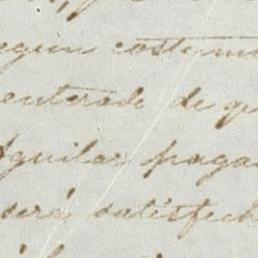 segun costum
enterado de q
Aguilar paga
será satisfech